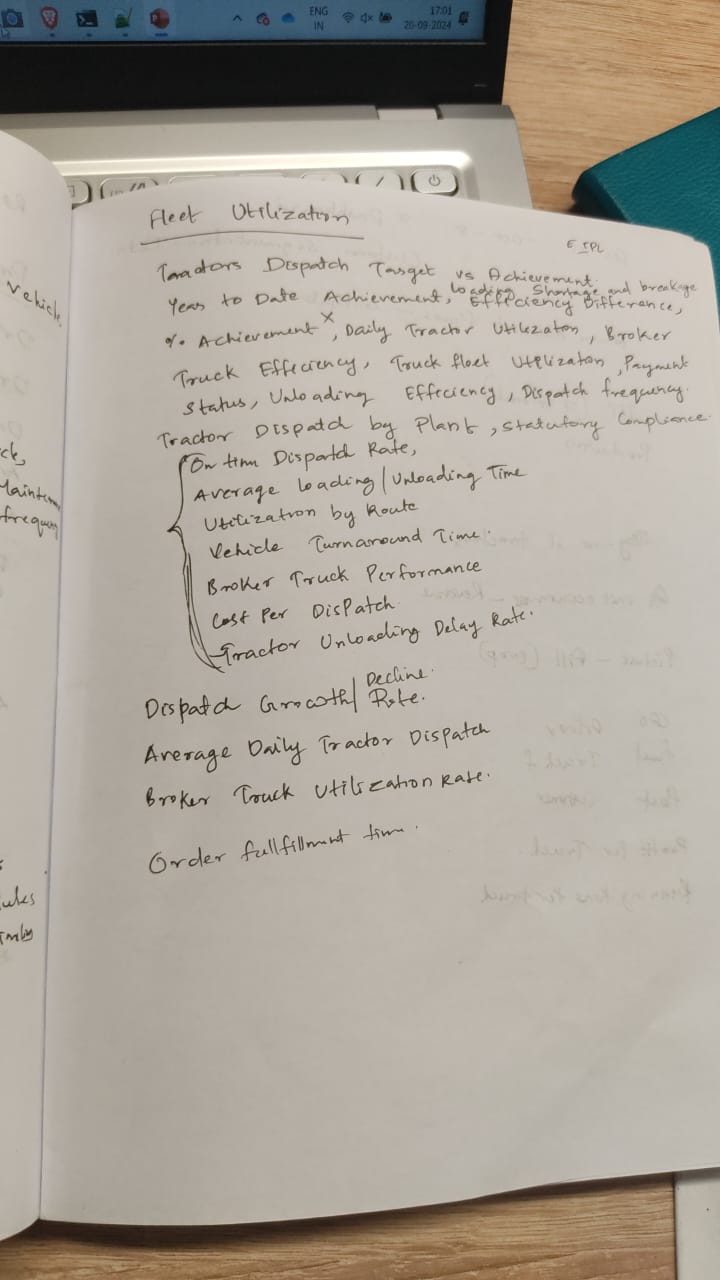 ENG
IN
17:01
20-09-2024
Vehicle
ck,
Mainten
frequen
ules
Fleet Utilization
Tractors Dispatch Target vs Achievement.
Year to Date Achievement, loading Efficiency Difference, Shortage and breakage
% Achievement X, Daily Tractor Utilizaton, Broker
Truck Effeciency, Truck fleet Utilizaton, Payment
Status, Unloading Effeciency, Dispatch frequency.
Tractor Dispatch by Plant, Statutory Compliance.
On time Dispatch Rate,
Average loading/Unloading Time
Utilization by Route
Vehicle Turnaround Time.
Broker Truck Performance
Cost Per Dispatch.
Tractor Unloading Delay Rate.
Dispatch Growth/Decline Rate.
Average Daily Tractor Dispatch
Broker Truck Utilization Rate.
Order fullfillment time.